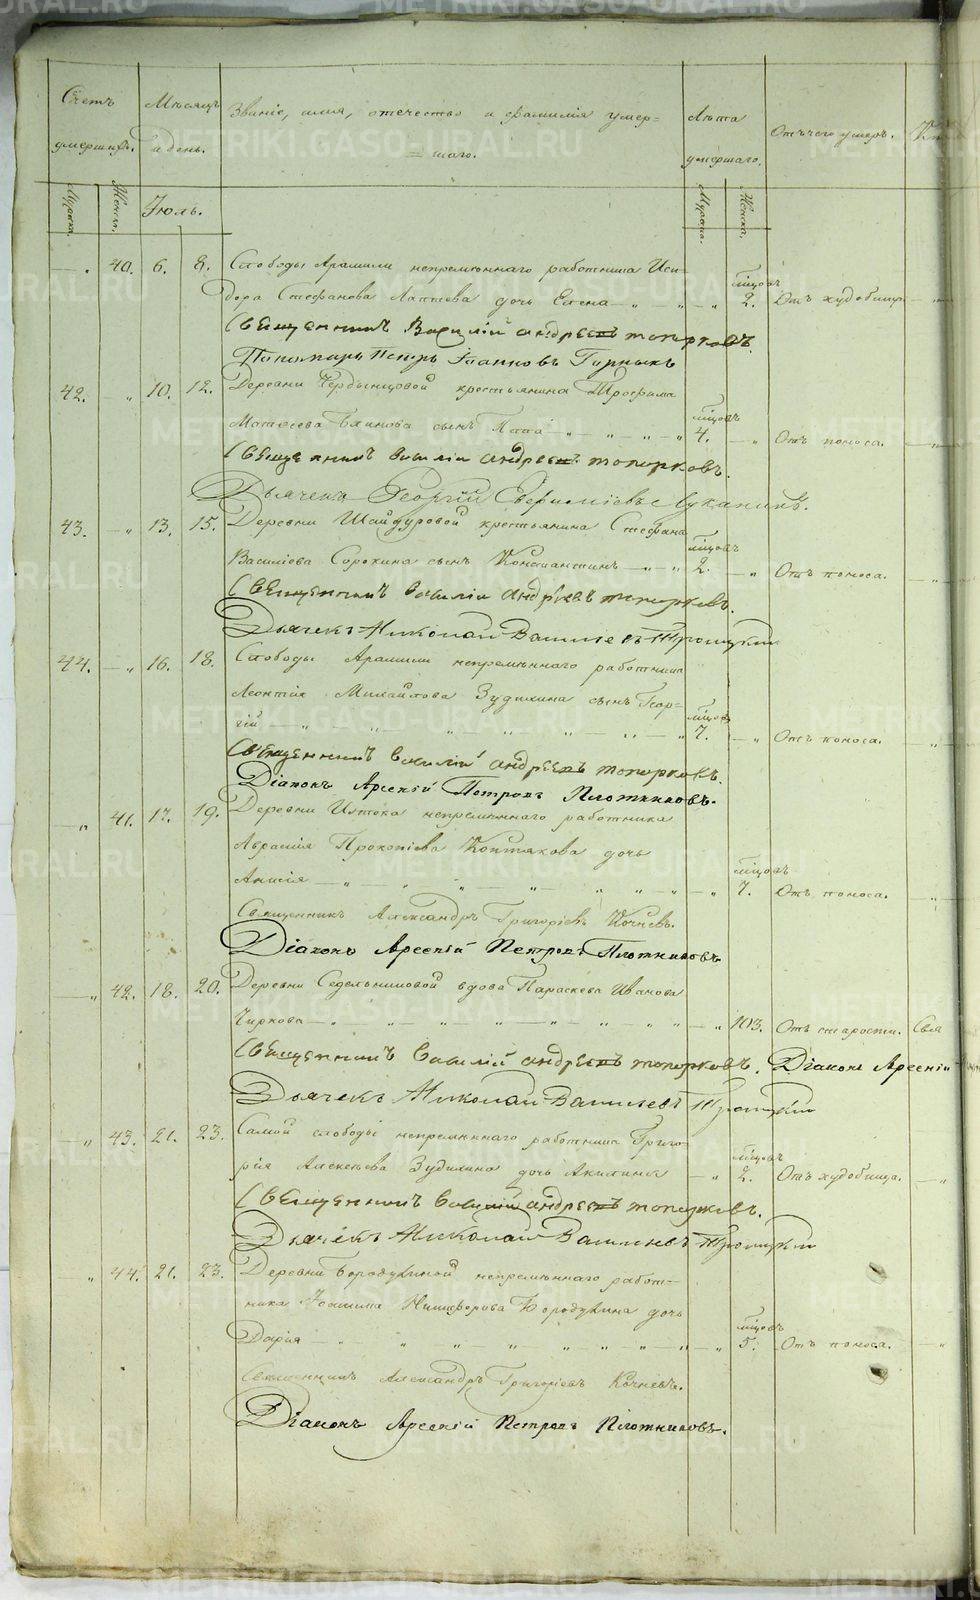 Счетъ умершихъ.
Мѣсяцъ и день.
Званіе, имя, отечество и фамилія умер=
=шаго.
Лѣта умершаго.
Отъ чего умеръ.
Мужска.
Женска.
Іюль.
Мужска.
Женска.
— „ 40. 6. 8. Слободы Арамили непремѣннаго работника Иси-
мѣцовъ
дора Стефанова Лаптева дочь Елена — „ — „ — „ 2. Отъ худобищи
Священникъ Василій Андреевъ Топорковъ.
Пономарь Петръ Іоанновъ Горныхъ
42. „ 10. 12. Деревни крестьянина Трофима
мѣцовъ
Матвеева Блинова сынъ — „ — „ — „ 4. — „ Отъ поноса. — „
Священникъ Василій Андреевъ Топорковъ.
Дьячекъ Георгій Луканинъ.
43. — „ 13. 15. Деревни Шайдуровой крестьянина Стефана
мѣцовъ
Василіева Сорокина сынъ Константинъ — „ — „ 2. — „ Отъ поноса. — „
Священникъ Василій Андреевъ Топорковъ.
Дьячекъ Николай Васильевъ Троицкій
44. — „ 16. 18. Слободы Арамили непремѣннаго работника
Леонтія Михайлова Зудихина сынъ Геор-
мѣцовъ
гій — „ — „ — „ — „ — „ — „ 7. — „ Отъ поноса. — „
Священникъ Василій Андреевъ Топорковъ.
Діаконъ Арсеній Петровъ Плотниковъ.
— „ 41. 17. 19. Деревни Истока непремѣннаго работника
Аврамія Прокопіева Коптякова дочь
мѣцовъ
Анисія — „ — „ — „ — „ — „ — „ 7. Отъ поноса. — „
Священникъ Александръ Григоріевъ Кочневъ.
Діаконъ Арсеній Петровъ Плотниковъ
— „ 42. 18. 20. Деревни Седельниковой вдова Параскева Иванова
Чиркова — „ — „ — „ — „ — „ — „ 103. Отъ старости. Свя
Священникъ Василій Андреевъ Топорковъ. Діаконъ Арсеній
Дьячекъ Николай Васильевъ Троицкій
— „ 43. 21. 23. Самой слободы непремѣннаго работника Григо-
мѣцовъ
рія Алексѣева Зудихина дочь Акилина — „ 2. Отъ худобища. — „
Священникъ Василій Андреевъ Топорковъ.
Дьячекъ Николай Васильевъ Троицкій
„ 44. 21. 23. Деревни Бородулиной непремѣннаго работ-
ника Іоакима Никифорова Бородулина дочь
мѣцовъ
Дарія — „ — „ — „ — „ — „ — „ 5. Отъ поноса. — „
Священникъ Александръ Григоріевъ Кочневъ.
Діаконъ Арсеній Петровъ Плотниковъ.
METRIKI.GASO-URAL.RU